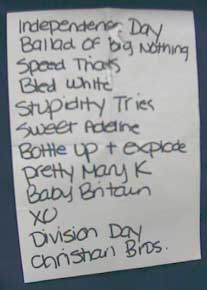 Independence Day
Ballad of Big Nothing
Speed Trials
Bled White
Stupidity Tries
Sweet Adeline
Bottle up + explode
Pretty Mary K
Baby Britain
XO
Division Day
Christian Bros.